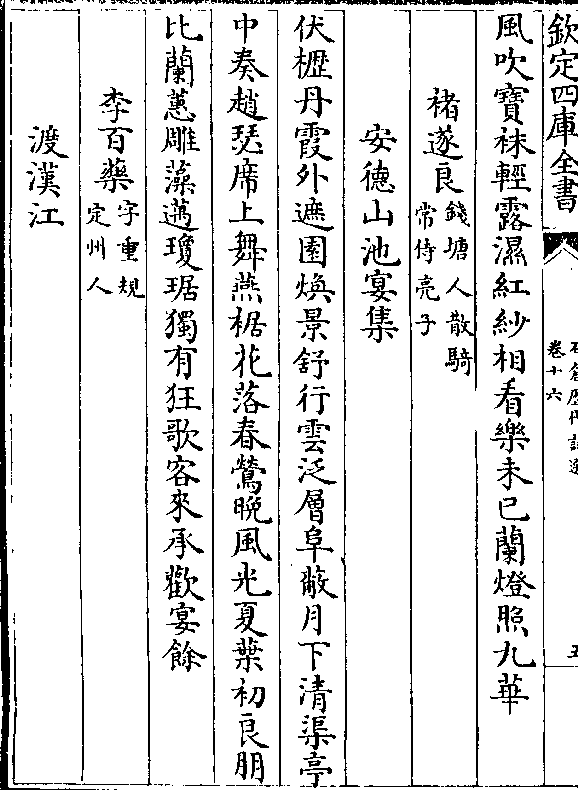 欽定四庫全書
卷十六
風吹寶袜輕露濕紅紗相看樂未已蘭燈照九華
褚遂良錢塘人散騎
常侍亮子
安德山池宴集
伏櫪丹霞外遮園煥景舒行雲泛層阜蔽月下清渠亭
中奏趙瑟席上舞燕裾花落春鶯晩風光夏葉初良朋
比蘭蕙雕藻邁瓊琚獨有狂歌客來承歡宴餘
李百藥字重規
定州人
渡漢江